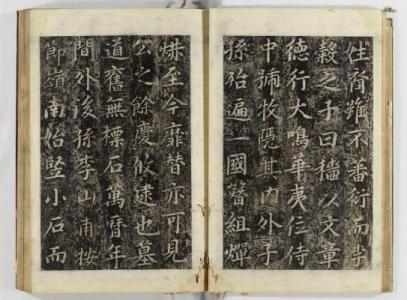 姓裔雖不蕃衍而李
穀之子曰穡以文章
德行大鳴華夷位侍
中號牧隱其內外子
孫殆遍一國簪組燀
爀至今靡替亦可見
公之餘慶攸逮也墓
道舊無標石萬曆年
間外後孫李山甫按
節嶺南始竪小石而